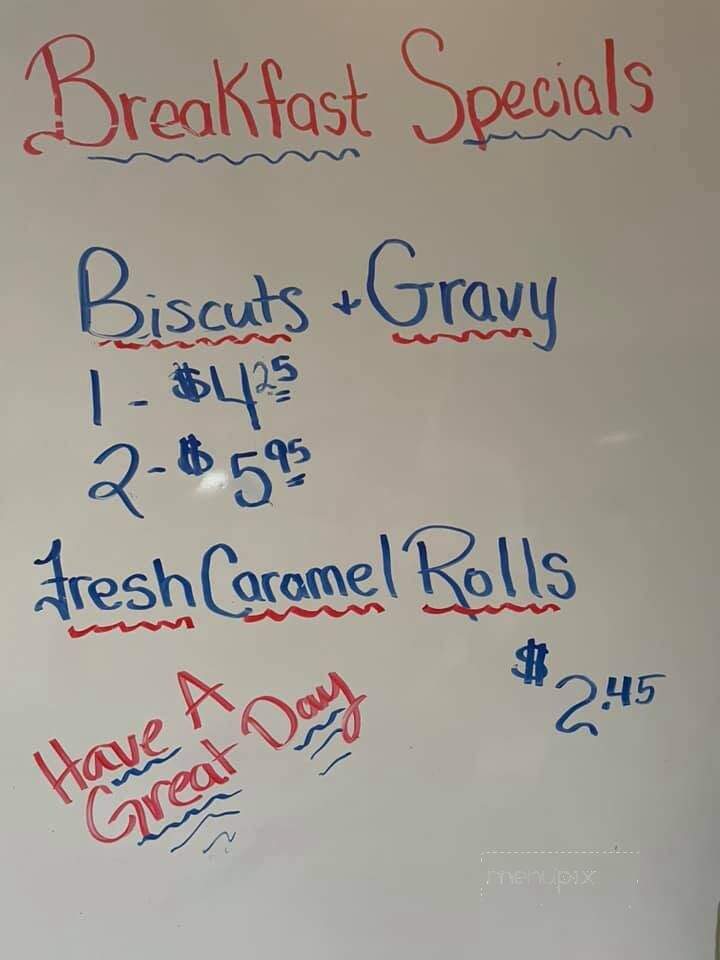 Breakfast Specials
Biscuts + Gravy
1 - $4.25
2 - $5.95
Fresh Caramel Rolls
$2.45
Have A
Great Day
menupix